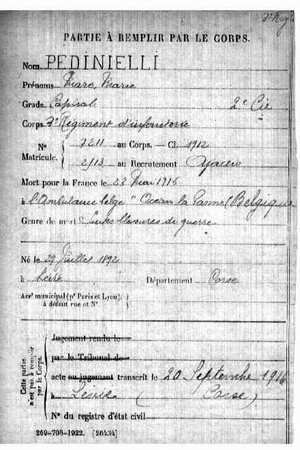 3e Rég
PARTIE À REMPLIR PAR LE CORPS.
Nom PEDINIELLI
Prénoms Marc, Marie
Grade Caporal 2e Cie
Corps 3e Régiment d'infanterie
N° Matricule. 7211 au Corps. — Cl. 1912
2113 au Recrutement Ajaccio
Mort pour la France le 23 Mai 1916
à l'Ambulance belge "Océan" la Panne (Belgique
Genre de mort Suites blessures de guerre
Né le 29 Juillet 1892
à Département Corse
Arrt municipal (pr Paris et Lyon),
à défaut rue et N°
Cette partie n'est pas à remplir par le Corps.
Jugement rendu le
par le Tribunal de
acte ou jugement transcrit le 20 Septembre 1916
à (Corse)
N° du registre d'état civil
269-708-1922. [26434]